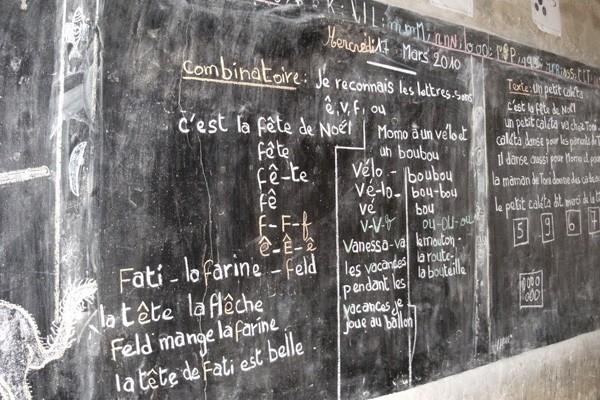 Mercredi 17 Mars 2010
Combinatoire : Je reconnais les lettres-sons
ê, v, f, ou
c'est la fête de Noël
fête
fê-te
fê
f-F-f
ê-Ê-ê
Fati - la farine - Feld
la tête la flêche
Feld mange la farine
la tête de Fati est belle.
Momo a un vélo et
un boubou
vélo - boubou
vé-lo- bou-bou
vé bou
v-V-v ou-ou-ou
Vanessa-va
les vacances
pendant les
vacances je
joue au ballon
le mouton-
la route-
la bouteille
Texte: un petit caleta
c'est la fête de Noël
un petit caleta va chez Tom
caleta danse pour les parents de
Il danse aussi pour Momo et
la maman de Tom donne des
le petit caleta dit merci de
5 9 6 7